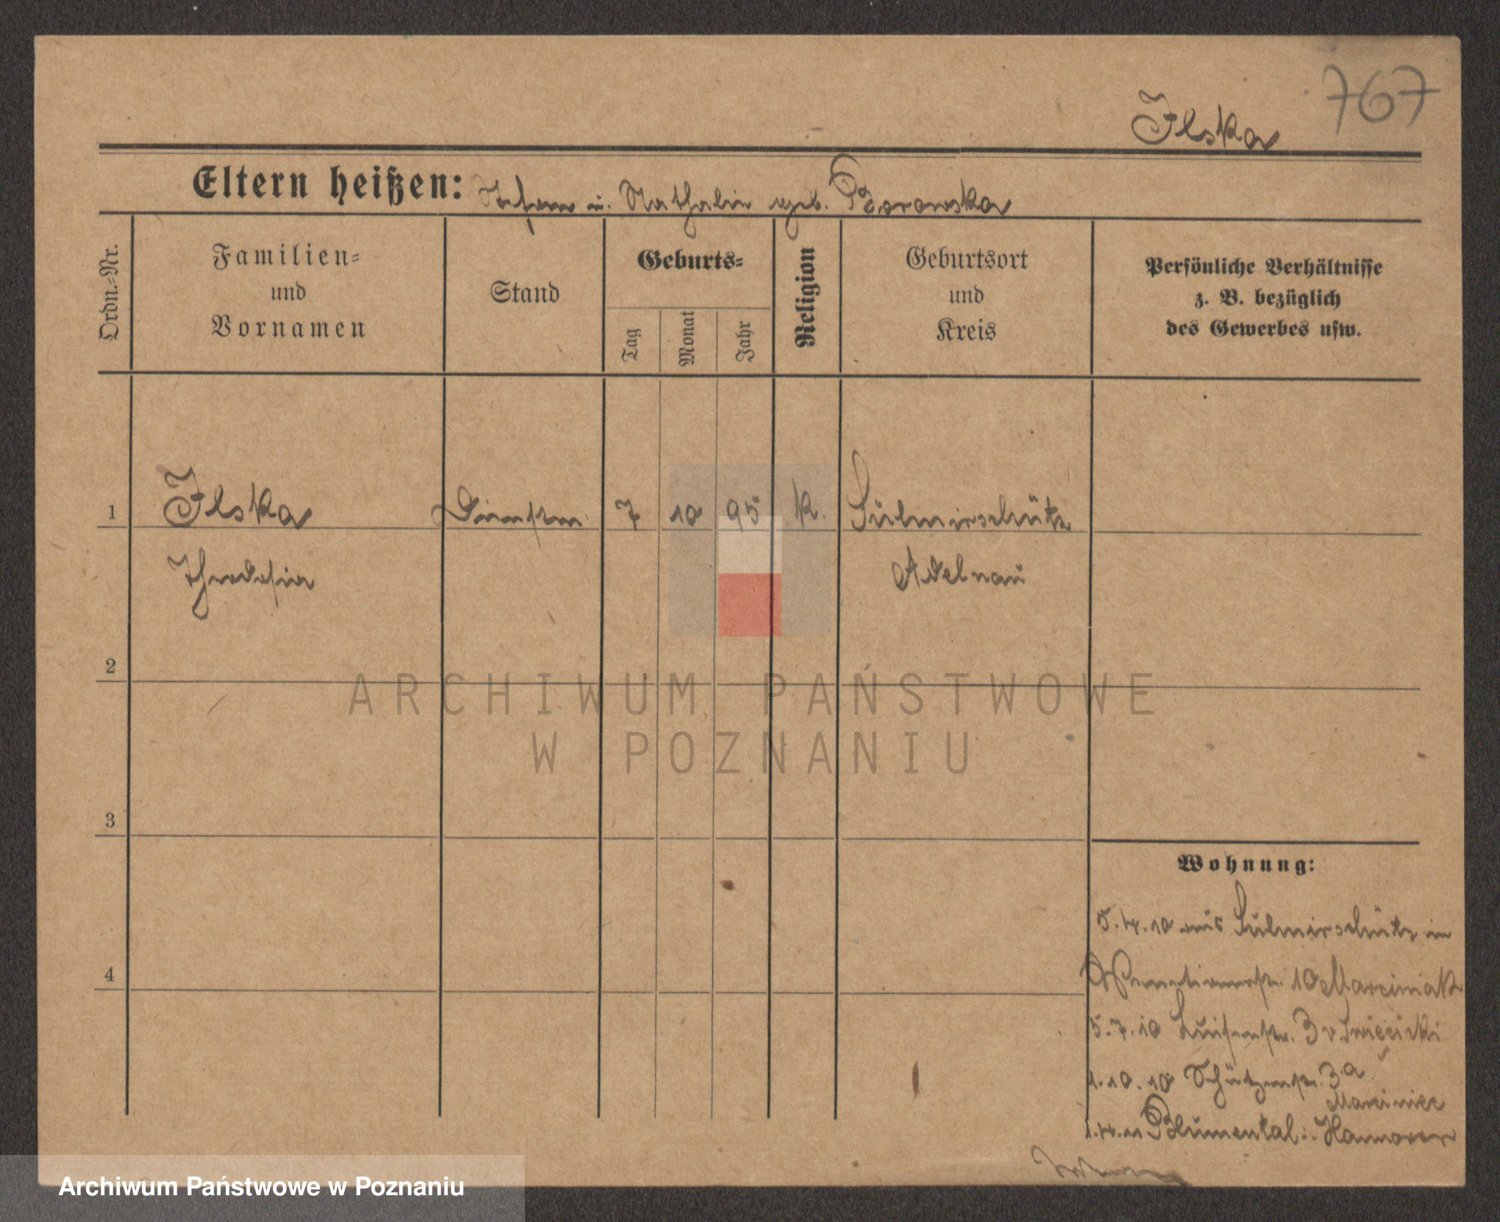 767
Ilska
Eltern heißen: Stefan u. Nathalie geb. Borowska
Ordn.-Nr.
Familien- und Vornamen
Stand
Geburts-
Tag
Monat
Jahr
Religion
Geburtsort und Kreis
Persönliche Verhältnisse z. B. bezüglich des Gewerbes usw.
1 Ilska Dienstm 7 10 95 k. Sulmirschütz
Theodosia Adelnau
2
ARCHIWUM PAŃSTWOWE
W POZNANIU
3
Wohnung:
5.4.10 aus Sulmirschütz in
10 Marciniak
4
5.7.10 Luisenstr. 3 v. Swiecicki
1.10.10 Schützenstr. 3a
Marciniec
1.4.11 Blumental: Hannover
Archiwum Państwowe w Poznaniu